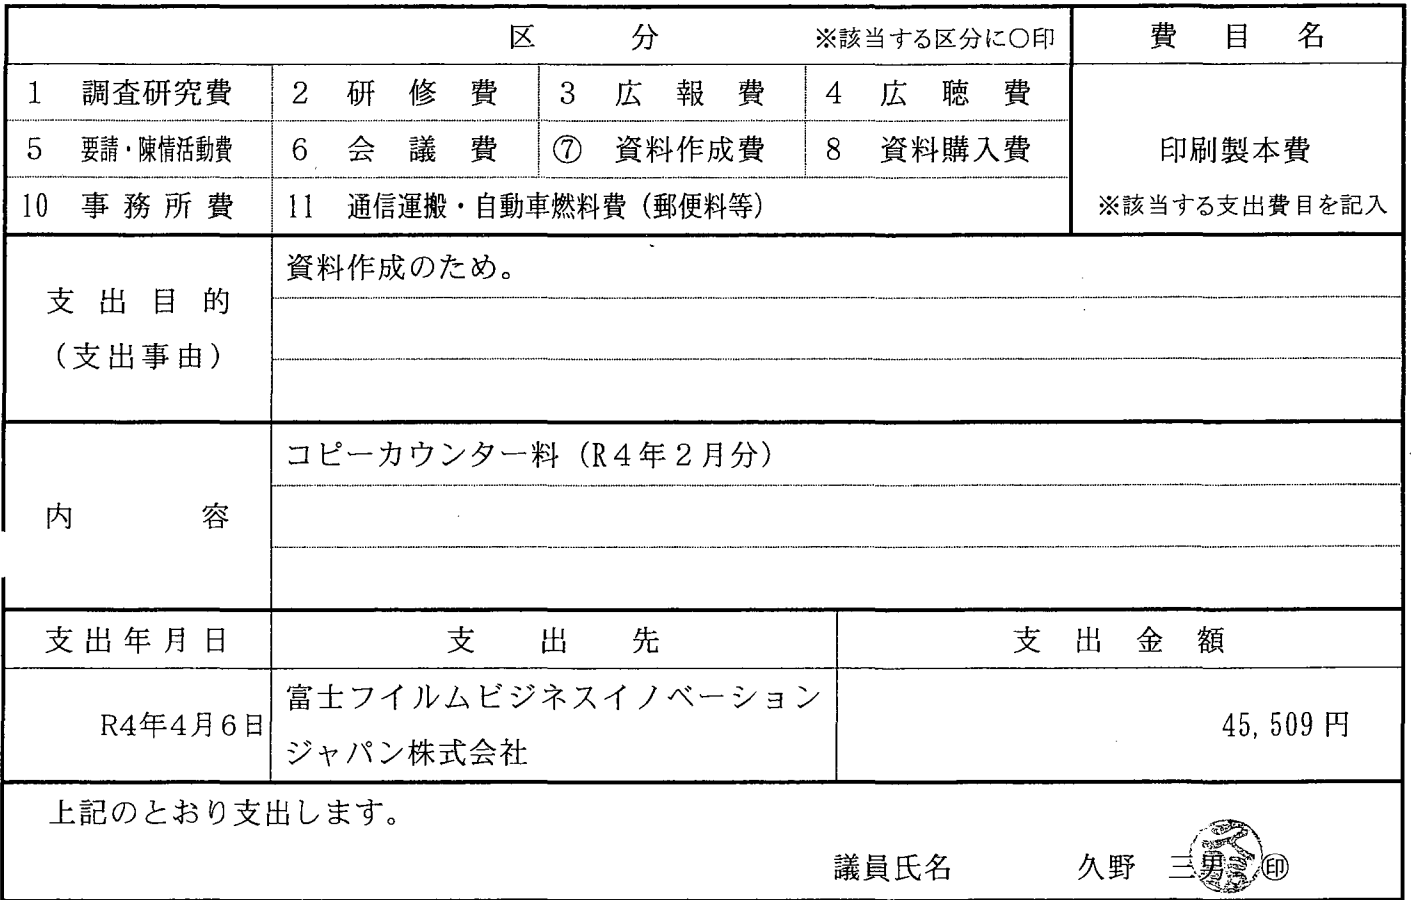 区 分 ※該当する区分に○印 費 目 名
1 調査研究費 2 研 修 費 3 広 報 費 4 広 聴 費
5 要請・陳情活動費 6 会 議 費 ⑦ 資料作成費 8 資料購入費 印刷製本費
10 事務所費 11 通信運搬・自動車燃料費（郵便料等） ※該当する支出費目を記入
支出目的
（支出事由）
資料作成のため。
内 容
コピーカウンター料（R４年２月分）
支出年月日 支 出 先 支 出 金 額
R4年4月6日
富士フイルムビジネスイノベーション
ジャパン株式会社
45,509円
上記のとおり支出します。
議員氏名 久野 三男 ㊞